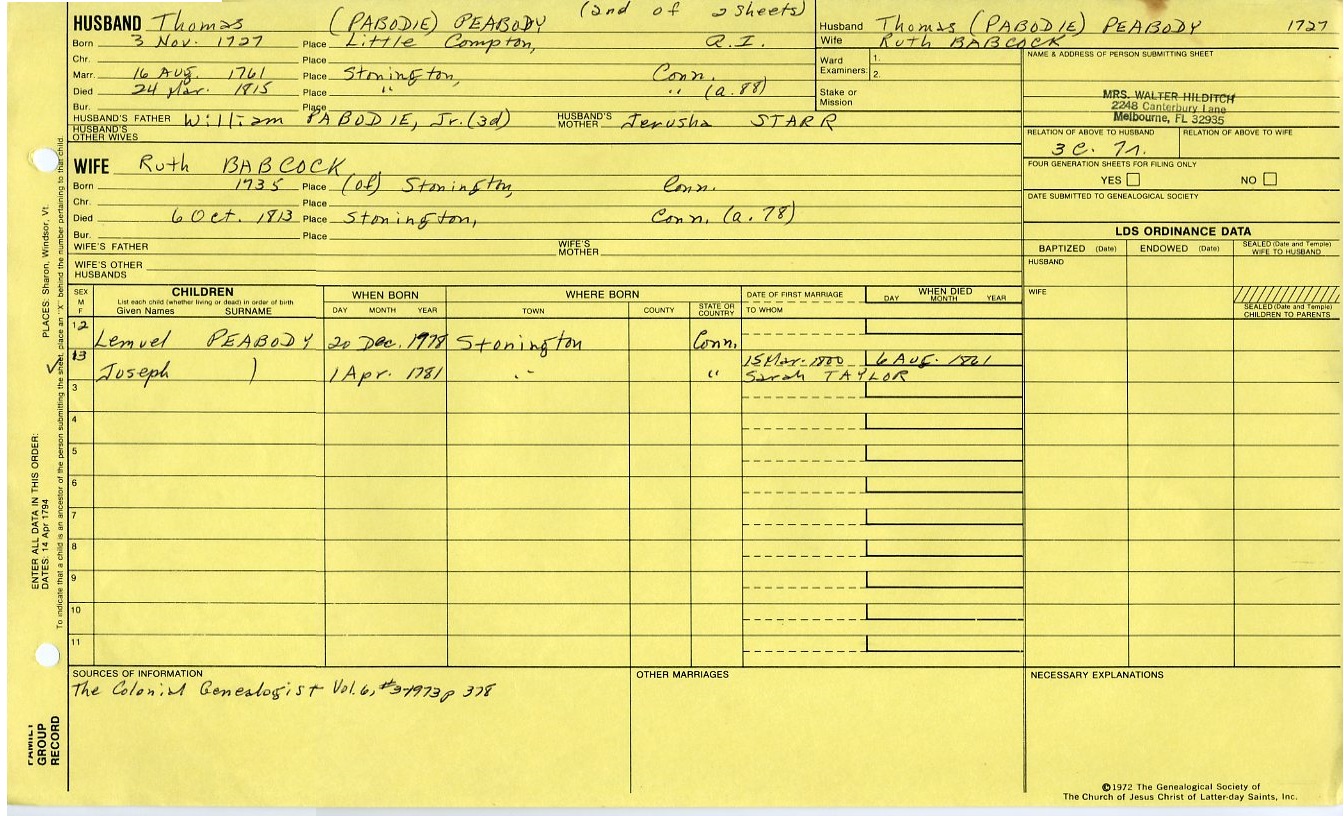 (2nd of 2 sheets)
HUSBAND Thomas (PABODIE) PEABODY
Born 3 Nov. 1727 Place Little Compton, R.I.
Chr. Place
Marr. 16 Aug. 1761 Place Stonington, Conn.
Died 24 Mar. 1815 Place " " (a.88)
Bur. Place
HUSBAND'S FATHER William PABODIE, Jr.(3d) HUSBAND'S MOTHER Jerusha STARR
HUSBAND'S OTHER WIVES
WIFE Ruth BABCOCK
Born 1735 Place (of) Stonington, Conn.
Chr. Place
Died 6 Oct. 1813 Place Stonington, Conn. (a.78)
Bur. Place
WIFE'S FATHER WIFE'S MOTHER
WIFE'S OTHER HUSBANDS
Husband Thomas (PABODIE) PEABODY 1727
Wife Ruth BABCOCK
Ward Examiners: 1.
2.
Stake or Mission
NAME & ADDRESS OF PERSON SUBMITTING SHEET
MRS. WALTER HILDITCH
2248 Canterbury Lane
Melbourne, FL 32935
RELATION OF ABOVE TO HUSBAND RELATION OF ABOVE TO WIFE
3 C. 7r.
FOUR GENERATION SHEETS FOR FILING ONLY
YES NO
DATE SUBMITTED TO GENEALOGICAL SOCIETY
LDS ORDINANCE DATA
BAPTIZED (Date) ENDOWED (Date) SEALED (Date and Temple) WIFE TO HUSBAND
HUSBAND
WIFE
SEALED (Date and Temple) CHILDREN TO PARENTS
SEX M F
CHILDREN
List each child (whether living or dead) in order of birth
Given Names SURNAME
WHEN BORN
DAY MONTH YEAR
WHERE BORN
TOWN COUNTY STATE OR COUNTRY
DATE OF FIRST MARRIAGE
TO WHOM
WHEN DIED
DAY MONTH YEAR
12 Lemuel PEABODY 20 Dec. 1978 Stonington Conn.
13 Joseph ) 1 Apr. 1781 " " 15 Mar. 1800 6 Aug. 1861
Sarah TAYLOR
3
4
5
6
7
8
9
10
11
SOURCES OF INFORMATION
The Colonial Genealogist Vol.6, #3-1973 p 378
OTHER MARRIAGES
NECESSARY EXPLANATIONS
©1972 The Genealogical Society of
The Church of Jesus Christ of Latter-day Saints, Inc.
FAMILY
GROUP
RECORD
ENTER ALL DATA IN THIS ORDER:
DATES: 14 Apr 1794
PLACES: Sharon, Windsor, Vt.
To indicate that a child is an ancestor of the person submitting the sheet, place an "X" behind the number pertaining to that child.